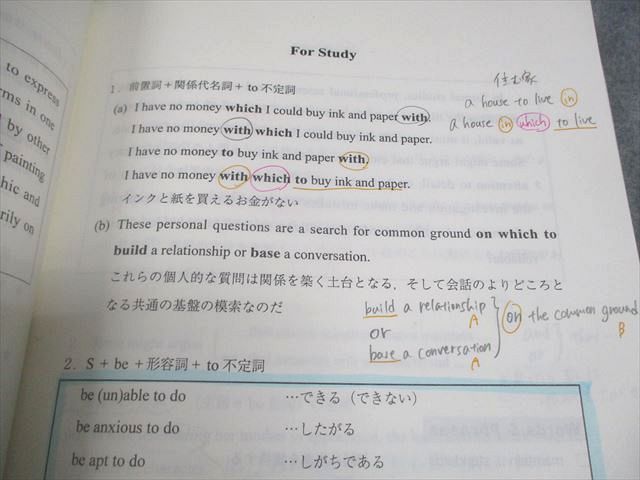 For Study
1. 前置詞+関係代名詞+to 不定詞
(a) I have no money which I could buy ink and paper with.
I have no money with which I could buy ink and paper.
I have no money to buy ink and paper with.
I have no money with which to buy ink and paper.
インクと紙を買えるお金がない
(b) These personal questions are a search for common ground on which to
build a relationship or base a conversation.
これらの個人的な質問は関係を築く土台となる，そして会話のよりどころと
なる共通の基盤の模索なのだ
2. S + be +形容詞+ to 不定詞
be (un)able to do …できる（できない）
be anxious to do …したがる
be apt to do …しがちである
住む家
a house to live in
a house in which to live
build a relationship
A
or
base a conversation
A
on the common ground
B
to express
rms in one
by other
painting
hic and
rily on